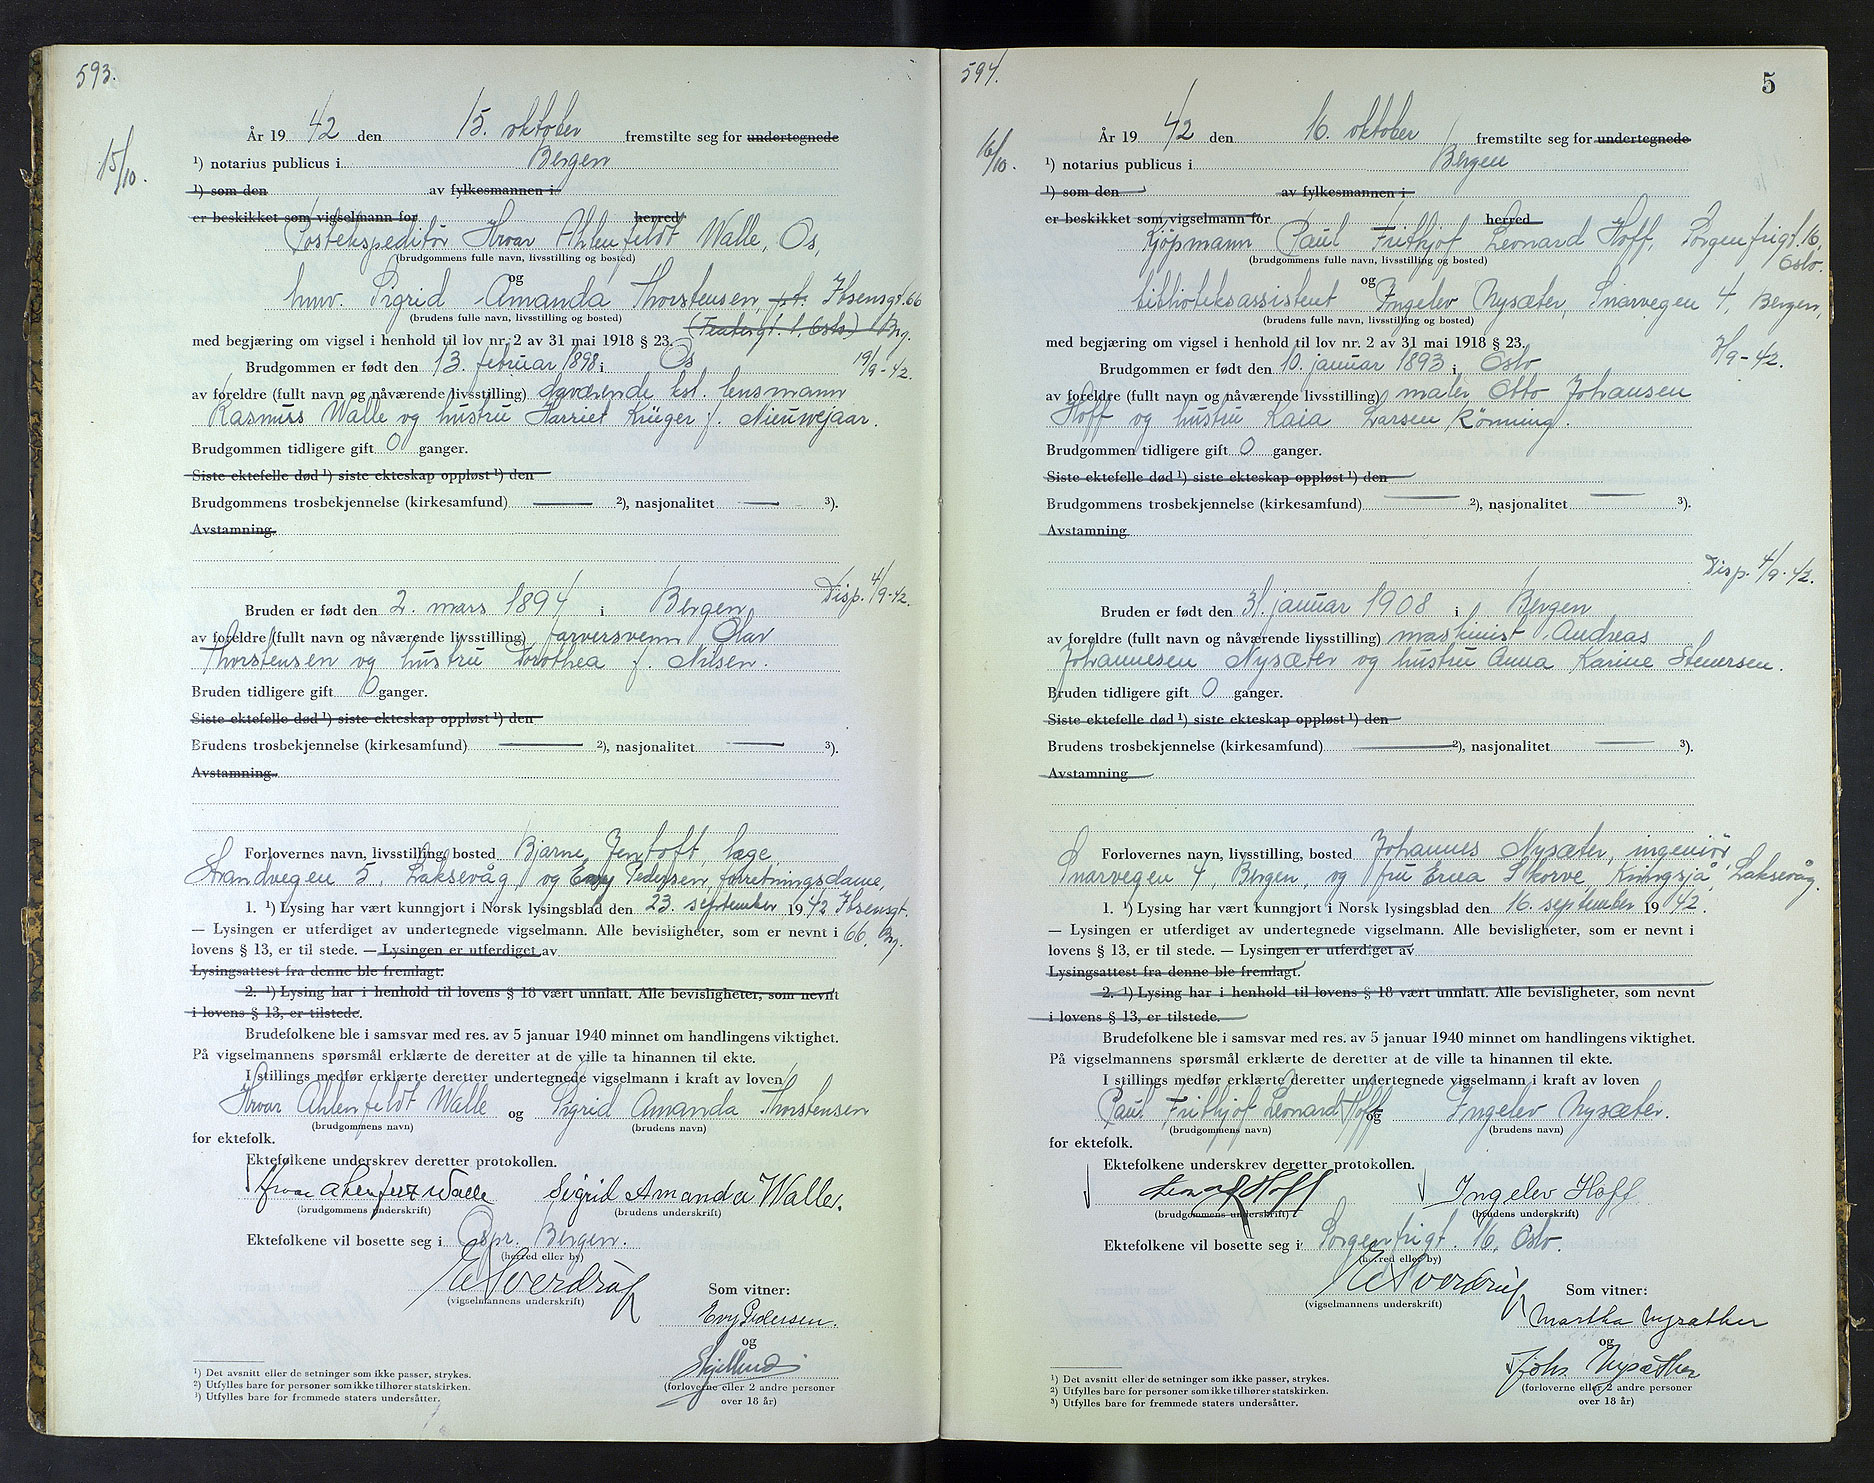 593.
15/10.
År 19 42 den 15. oktober fremstilte seg for undertegnede
¹) notarius publicus i Bergen
¹) som den av fylkesmannen i
er beskikket som vigselmann for herred
Postekspeditør Hroar Ahlenfeldt Walle, Os,
(brudgommens fulle navn, livsstilling og bosted)
og
husv. Sigrid Amanda Thorstensen, Ibsensgt. 66
(brudens fulle navn, livsstilling og bosted)
Brg.
med begjæring om vigsel i henhold til lov nr. 2 av 31 mai 1918 § 23.
Brudgommen er født den 13. februar 1898 i Os 19/9-42.
av foreldre (fullt navn og nåværende livsstilling) daværende kst. lensmann
Rasmus Walle og hustru Harriet Krüger f. Nieuwejaar.
Brudgommen tidligere gift 0 ganger.
Siste ektefelle død ¹) siste ekteskap oppløst ¹) den
Brudgommens trosbekjennelse (kirkesamfund) ²), nasjonalitet ³).
Avstamning
Disp. 4/9-42.
Bruden er født den 2. mars 1894 i Bergen
av foreldre (fullt navn og nåværende livsstilling) farversvenn Olav
Thorstensen og hustru Dorothea f. Nilsen.
Bruden tidligere gift 0 ganger.
Siste ektefelle død ¹) siste ekteskap oppløst ¹) den
Brudens trosbekjennelse (kirkesamfund) ²), nasjonalitet ³).
Avstamning
Forlovernes navn, livsstilling, bosted Bjarne Jentoft læge,
Strandvegen 5, Laksevåg og Evy Pedersen, forretningsdame,
1. ¹) Lysing har vært kunngjort i Norsk lysingsblad den 23. september 1942 Ibsensgt.
— Lysingen er utferdiget av undertegnede vigselmann. Alle bevisligheter, som er nevnt i 66, Brg.
lovens § 13, er til stede. — Lysingen er utferdiget av
Lysingsattest fra denne ble fremlagt.
2. ¹) Lysing har i henhold til lovens § 18 vært unnlatt. Alle bevisligheter, som nevnt
i lovens § 13, er tilstede.
Brudefolkene ble i samsvar med res. av 5 januar 1940 minnet om handlingens viktighet.
På vigselmannens spørsmål erklærte de deretter at de ville ta hinannen til ekte.
I stillings medfør erklærte deretter undertegnede vigselmann i kraft av loven
Hroar Ahlenfeldt Walle og Sigrid Amanda Thorstensen
(brudgommens navn) (brudens navn)
for ektefolk.
Ektefolkene underskrev deretter protokollen.
Hroar Ahlenfeldt Walle Sigrid Amanda Walle.
(brudgommens underskrift) (brudens underskrift)
Ektefolkene vil bosette seg i Os pr. Bergen.
(herred eller by)
E Sverdrup
(vigselmannens underskrift)
Som vitner:
Evy Pedersen.
og
(forloverne eller 2 andre personer
over 18 år)
¹) Det avsnitt eller de setninger som ikke passer, strykes.
²) Utfylles bare for personer som ikke tilhører statskirken.
³) Utfylles bare for fremmede staters undersåtter.
594.
5
16/10.
År 19 42 den 16. oktober fremstilte seg for undertegnede
¹) notarius publicus i Bergen
¹) som den av fylkesmannen i
er beskikket som vigselmann for herred
Kjøpmann Paul Frithjof Leonard Hoff, Sorgenfrigt. 16,
Oslo.
(brudgommens fulle navn, livsstilling og bosted)
og
biblioteksassistent Ingelev Nysæter, Snarvegen 4, Bergen,
(brudens fulle navn, livsstilling og bosted)
med begjæring om vigsel i henhold til lov nr. 2 av 31 mai 1918 § 23.
Brudgommen er født den 10. januar 1893 i Oslo 7/9-42.
av foreldre (fullt navn og nåværende livsstilling) maler Otto Johansen
Hoff og hustru Kaia Larsen Rønning.
Brudgommen tidligere gift 0 ganger.
Siste ektefelle død ¹) siste ekteskap oppløst ¹) den
Brudgommens trosbekjennelse (kirkesamfund) ²), nasjonalitet ³).
Avstamning
Disp. 4/9-42.
Bruden er født den 31. januar 1908 i Bergen
av foreldre (fullt navn og nåværende livsstilling) maskinist Andreas
Johannesen Nysæter og hustru Anna Karine Stenersen.
Bruden tidligere gift 0 ganger.
Siste ektefelle død ¹) siste ekteskap oppløst ¹) den
Brudens trosbekjennelse (kirkesamfund) ²), nasjonalitet ³).
Avstamning
Forlovernes navn, livsstilling, bosted Johannes Nysæter, ingeniør,
Snarvegen 4, Bergen, og fru Erna Skorve, Kringsjå, Laksevåg.
1. ¹) Lysing har vært kunngjort i Norsk lysingsblad den 16. september 1942.
— Lysingen er utferdiget av undertegnede vigselmann. Alle bevisligheter, som er nevnt i
lovens § 13, er til stede. — Lysingen er utferdiget av
Lysingsattest fra denne ble fremlagt.
2. ¹) Lysing har i henhold til lovens § 18 vært unnlatt. Alle bevisligheter, som nevnt
i lovens § 13, er tilstede.
Brudefolkene ble i samsvar med res. av 5 januar 1940 minnet om handlingens viktighet.
På vigselmannens spørsmål erklærte de deretter at de ville ta hinannen til ekte.
I stillings medfør erklærte deretter undertegnede vigselmann i kraft av loven
Paul Frithjof Leonard Hoff og Ingelev Nysæter.
(brudgommens navn) (brudens navn)
for ektefolk.
Ektefolkene underskrev deretter protokollen.
Leonard Hoff Ingelev Hoff
(brudgommens underskrift) (brudens underskrift)
Ektefolkene vil bosette seg i Sorgenfrigt. 16, Oslo.
(herred eller by)
E Sverdrup
(vigselmannens underskrift)
Som vitner:
Martha Nysæther
og
Johs Nysæther
(forloverne eller 2 andre personer
over 18 år)
¹) Det avsnitt eller de setninger som ikke passer, strykes.
²) Utfylles bare for personer som ikke tilhører statskirken.
³) Utfylles bare for fremmede staters undersåtter.